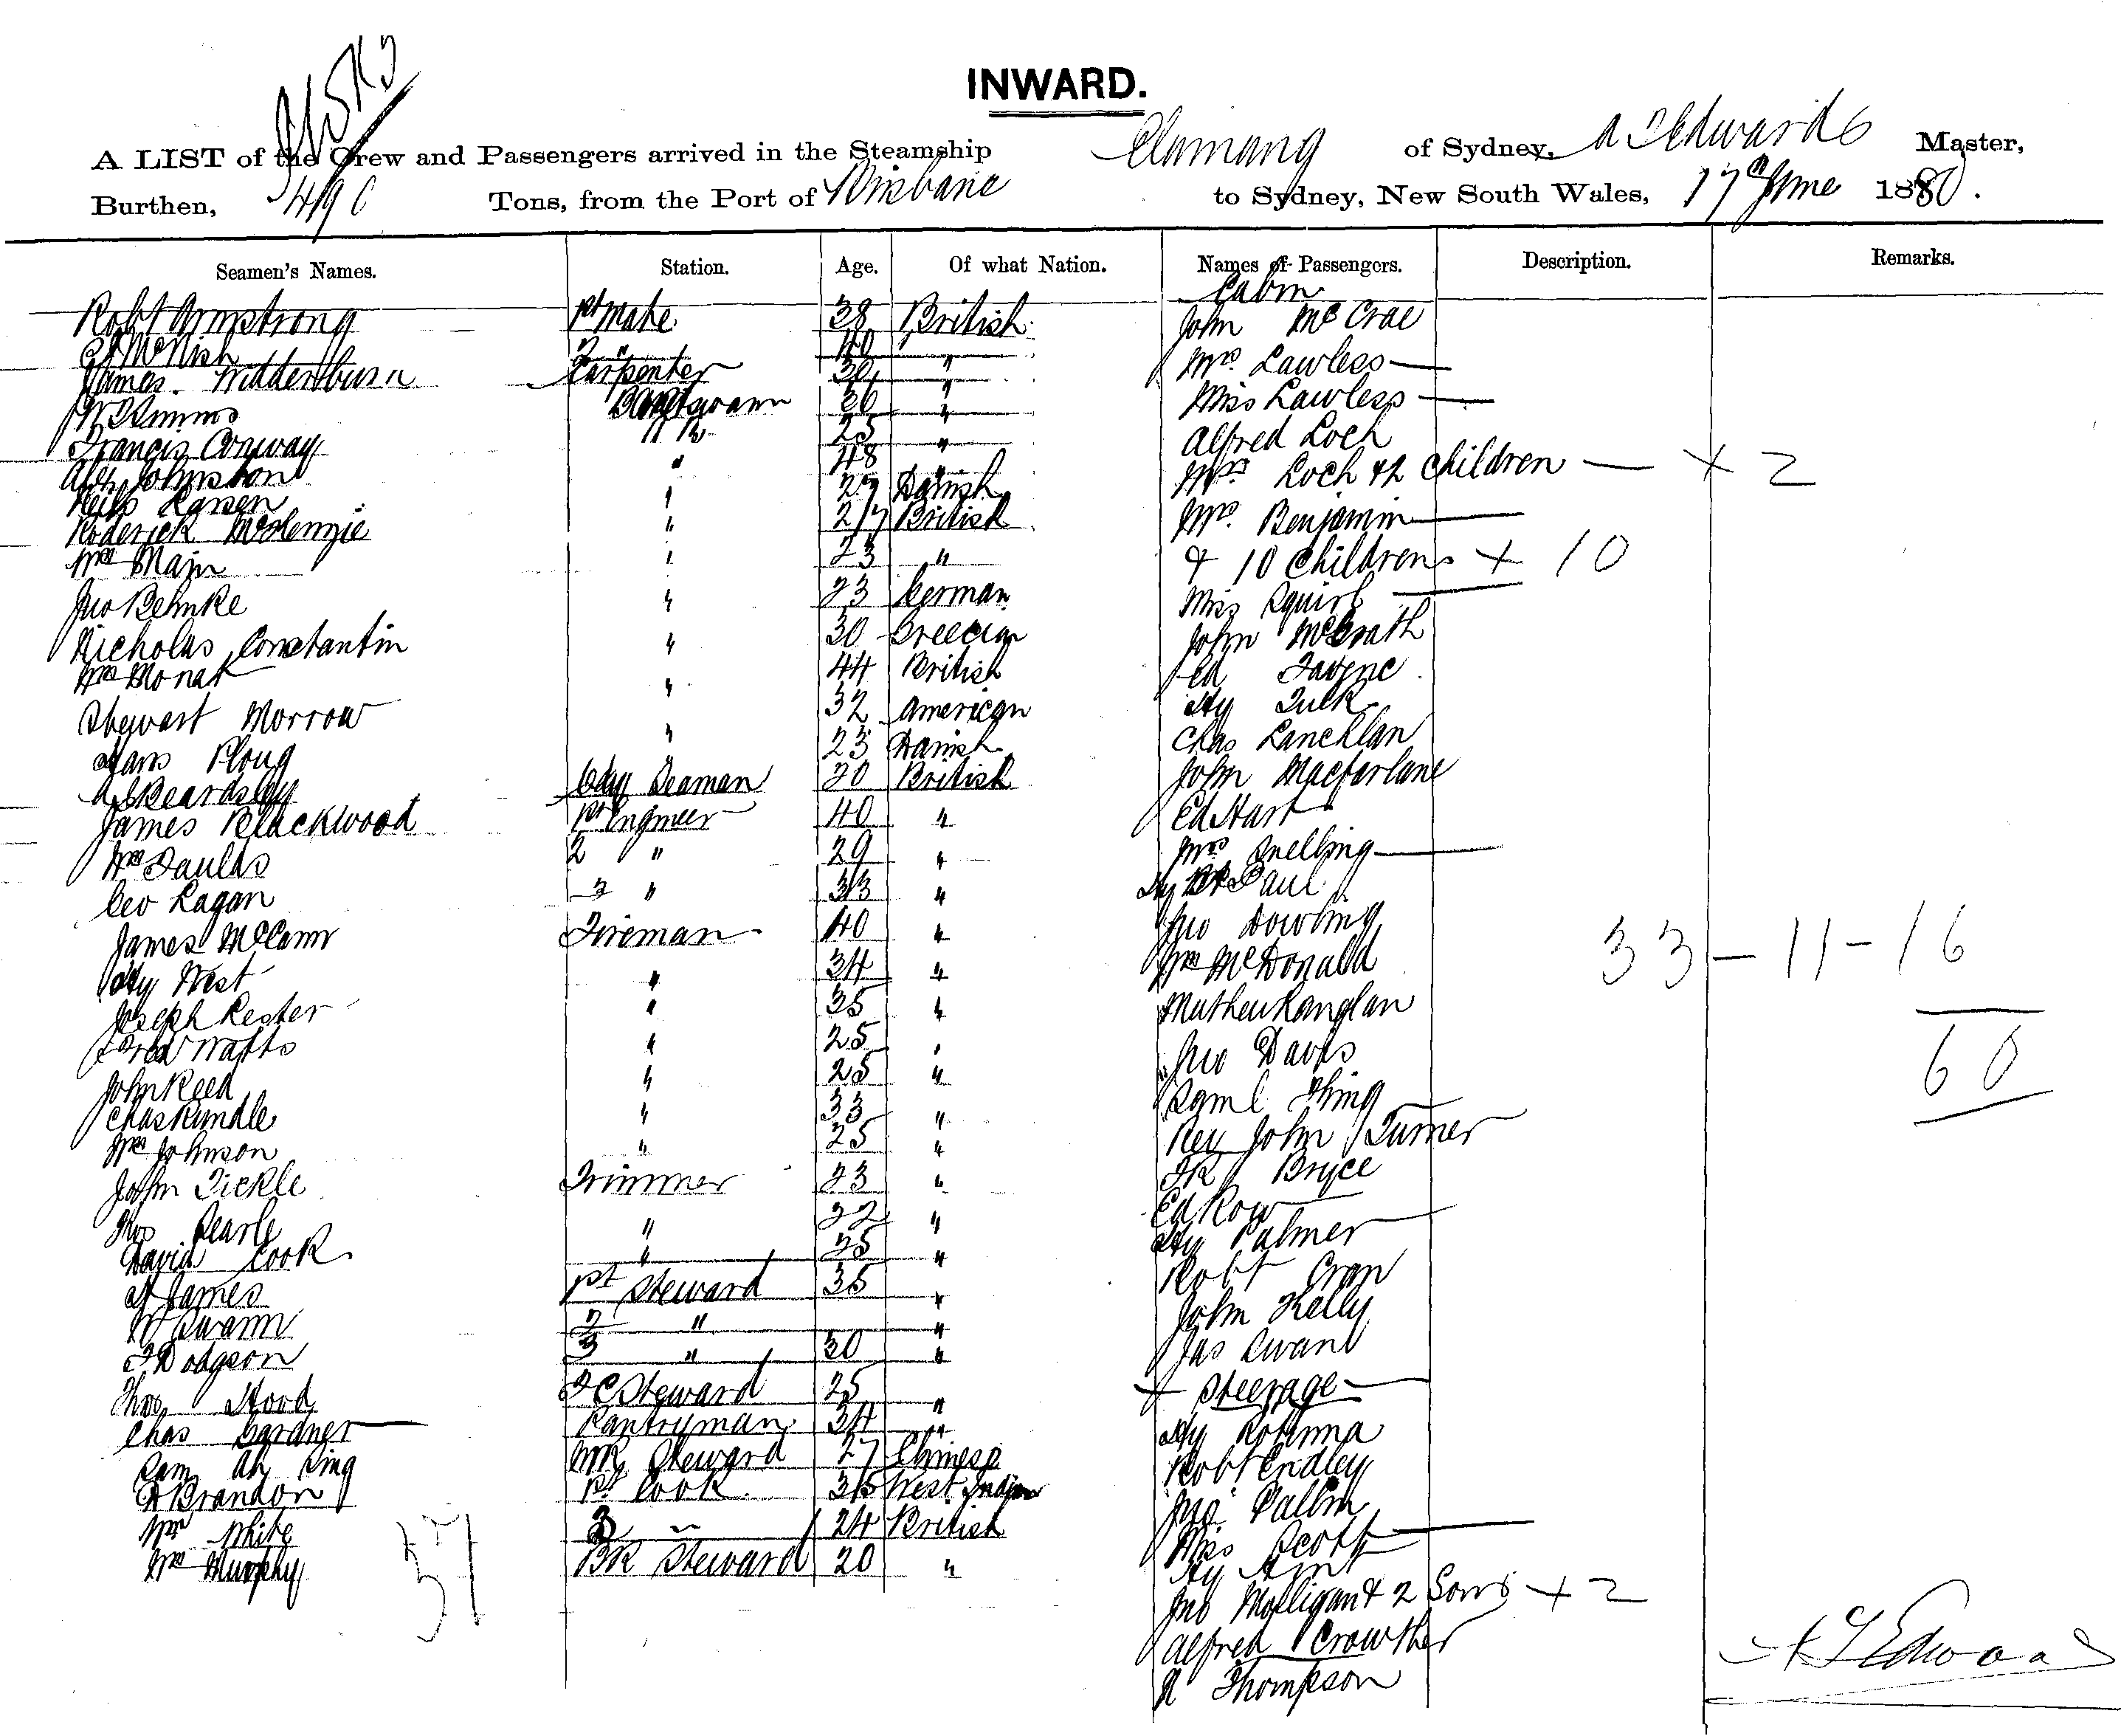 INWARD.
A LIST of the Crew and Passengers arrived in the Steamship Elamang of Sydney, A T Edwards Master,
Burthen, 496 Tons, from the Port of Brisbane to Sydney, New South Wales, 17th June 1880.
Seamen's Names. Station. Age. Of what Nation. Names of Passengers. Description. Remarks.
Cabin
Robt Armstrong 1st Mate 38 British John McCrae
McNish 2 " 40 " Mrs Lawless
James Widdenburn Carpenter 30 " Miss Lawless
Boatswain 36 " Alfred Loch
Francis Conway A B 25 " Mrs Loch & 2 Children — + 2
Alex Johnston " 48 "
Neils Larsen " 27 Danish Mrs Benjamin
Roderick McKenzie " 27 British & 10 Childrens + 10
Wm Main " 23 " Miss Squirl
Jno Behnke " 23 German John McGrath
Nicholas Constantin " 30 Greecian Ed Favenc
Wm Monat " 44 British Hy Tulk
Stewart Morrow " 32 American Chas Lanchlan
Hans Ploug " 23 Danish John Macfarlane
A Beardsley Ody Seaman 20 British Ed Hart
James Blackwood 1st Engineer 40 " Mrs Snelling
Wm Faulds 2 " 29 " Hy Paul
Geo Lagan 3 " 33 " Jno Dowling
James McCann Fireman 40 " Wm McDonald 33 - 11 - 16
Hy West " 34 " Mathew Langlan
Joseph Lester " 35 " Jno Davis 60
Fred Watts " 25 " Saml Thing
John Reed " 25 " Rev John Turner
Chas Rundle " 33 " Fk Bryce
Wm Johnson " 25 " Ed Row
John Tickle Trimmer 23 " Hy Palmer
Thos Searle " 22 " Robt Cran
David Cook " 25 " John Kelly
James 1st Steward 35 " Jas Ewan
W Swann 2 " "
F Dodgson 3 " 30 " Steerage
Thos Hood F C Steward 25 "
Chas Gardner Pantryman 34 " Hy
Sam Ah Sing Steward 27 Chinese Robt Endley
Brandon 1st Cook 35 West Indian Jno
Wm White 2 " 24 British Miss Scott
Wm Murphy BR Steward 20 " Hy
37 Jno Molligan & 2 Sons + 2
Alfred Crowther
Thompson
A T Edwards